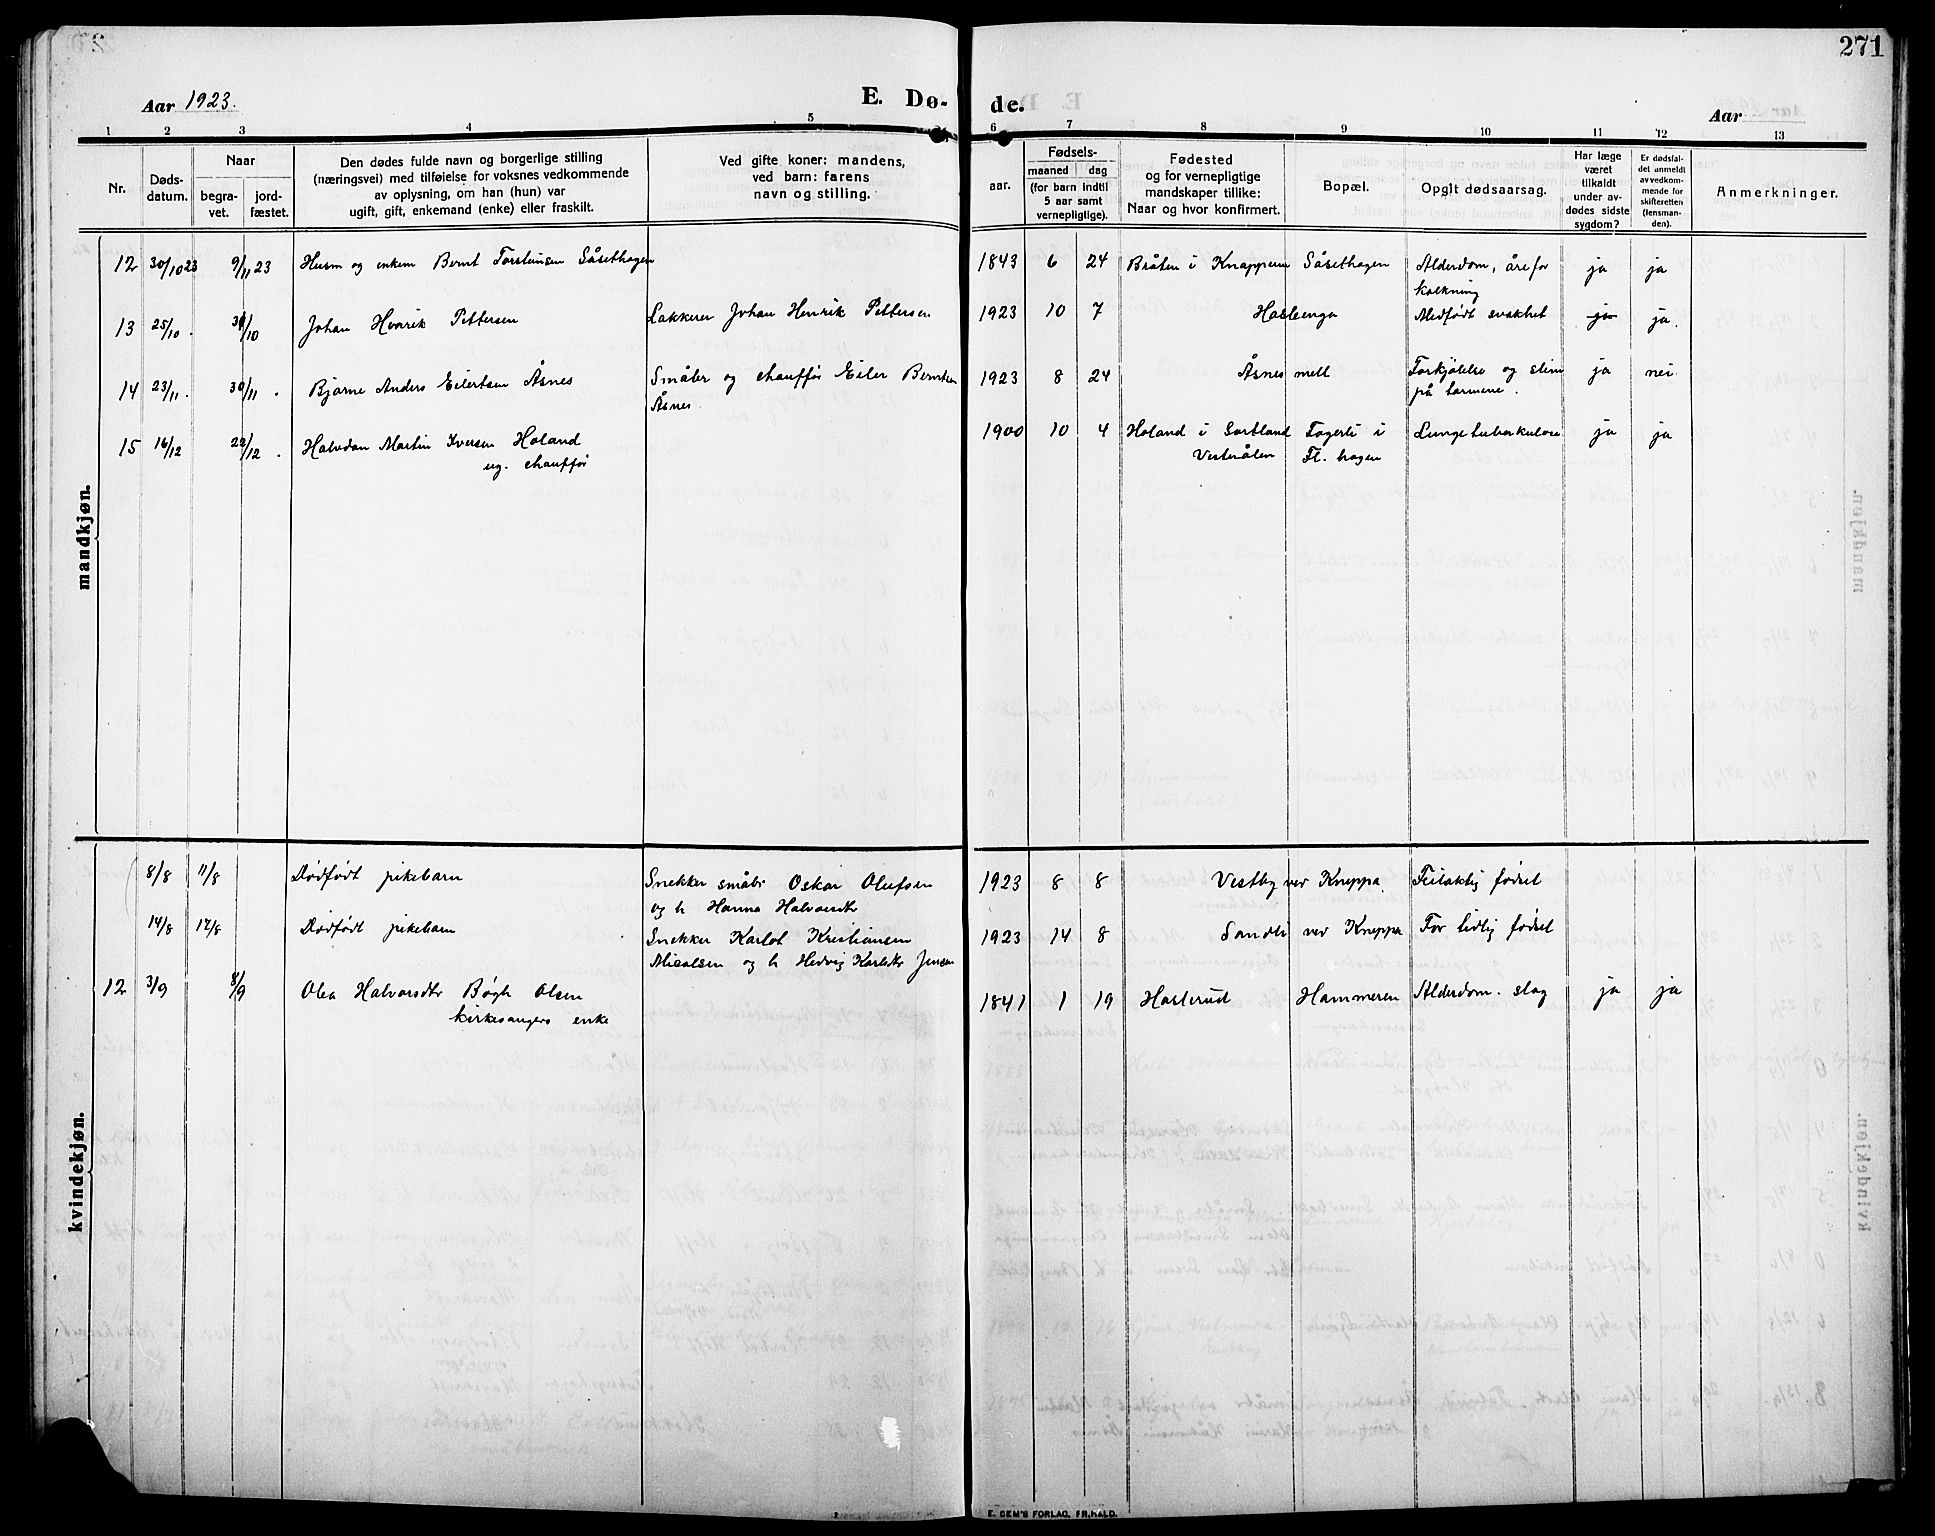 271
Aar 1923.
E. Dø- de.
Aar
1 2 3 4 5 6 7 8 9 10 11 12 13
Nr.
Døds-
datum.
Naar
begra-
vet.
jord-
fæstet.
Den dødes fulde navn og borgerlige stilling
(næringsvei) med tilføielse for voksnes vedkommende
av oplysning, om han (hun) var
ugift, gift, enkemand (enke) eller fraskilt.
Ved gifte koner: mandens,
ved barn: farens
navn og stilling.
aar.
Fødsels-
maaned dag
(for barn indtil
5 aar samt
vernepligtige).
Fødested
og for vernepligtige
mandskaper tillike:
Naar og hvor konfirmert.
Bopæl.
Opgit dødsaarsag.
Har læge
været
tilkaldt
under av-
dødes sidste
sygdom?
Er dødsfal-
det anmeldt
av vedkom-
mende for
skifteretten
(lensman-
den).
Anmerkninger.
mandkjøn.
12 30/10 23 9/11 23 Husm og enkem Bernt Torstensen Såsethagen 1843 6 24 Bråten i Knapperne Såsethagen Alderdom, årefor
kalkning ja ja
13 25/10. 31/10 Johan Henrik Pettersen Lakkerer Johan Henrik Pettersen 1923 10 7 Haslenga Medfødt svakhet ja ja.
14 23/11. 30/11. Bjarne Anders Eilertsen Åsnes Småbr og chauffør Eiler Berntsen
Åsnes. 1923 8 24 Åsnes mell Forkjølelse og slim
på tarmene. ja nei
15 16/12 22/12. Halvdan Martin Iversen Holand
ug. chauffør 1900 10 4 Holand i Sortland
Vesterålen Fagerli i
Fl. hagen Lungetuberkulose ja ja
kvindekjøn.
8/8 11/8 Dødfødt pikebarn Snekker småbr Oskar Olufsen
og h Hanna Halvorsdtr 1923 8 8 Vestby ved Kneppa. Feilaktig fødsel
14/8 17/8 Dødfødt pikebarn Snekker Karlot Kristiansen
Micalsen og h Hedvig Karlsdtr Jensen 1923 14 8 Sandli ved Kneppa For tidlig fødsel
12 3/9 8/9 Olea Halvorsdtr Bøgh Olsen
kirkesangers enke 1841 1 19 Haslerud Hammeren Alderdom. slag ja ja
E. SEM'S FORLAG, FR.HALD.